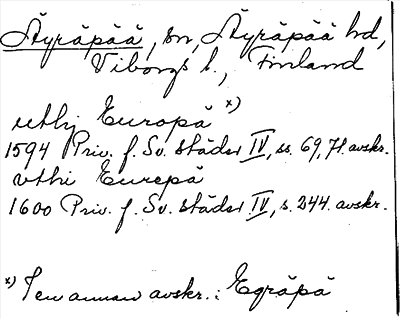 Äyräpää, sn, Äyräpää hd,
Viborgs l., Finland
uthj Europä x)
1594 Priv. f. Sv. städer IV, ss. 69, 71. avskr.
vthi Eurepä
1600 Priv. f. Sv. städer IV, s. 244. avskr.
x) I en annan avskr.: Egräpä